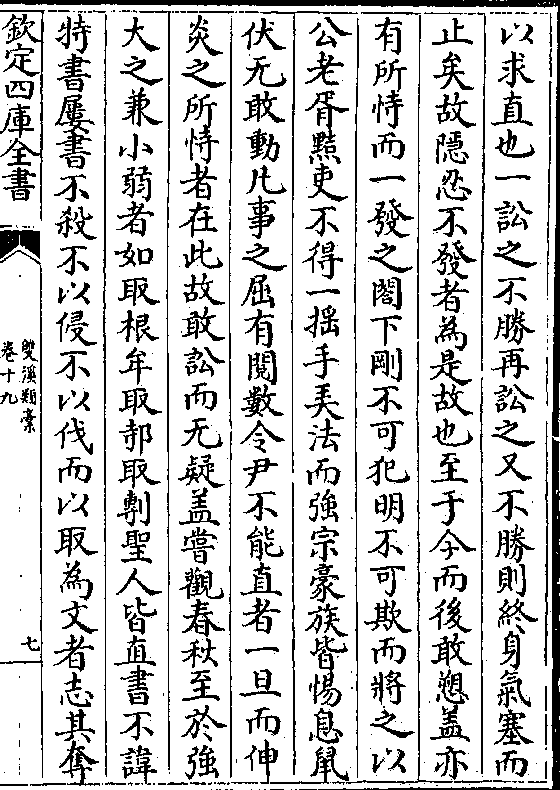 以求直也一訟之不勝再訟之又不勝則終身氣塞而
止矣故隱忍不發者為是故也至于今而後敢愬盖亦
有所恃而一發之閤下剛不可犯明不可欺而將之以
公老胥黠吏不得一揺手弄法而強宗豪族皆惕息鼠
伏无敢動凢事之屈有閲數令尹不能直者一旦而伸
炎之所恃者在此故敢訟而无疑盖嘗觀春秋至於強
大之兼小弱者如取根牟取邿取鄟聖人皆直書不諱
特書屢書不殺不以侵不以伐而以取為文者志其奪
欽定四庫全書
雙溪類稾
卷十九
七